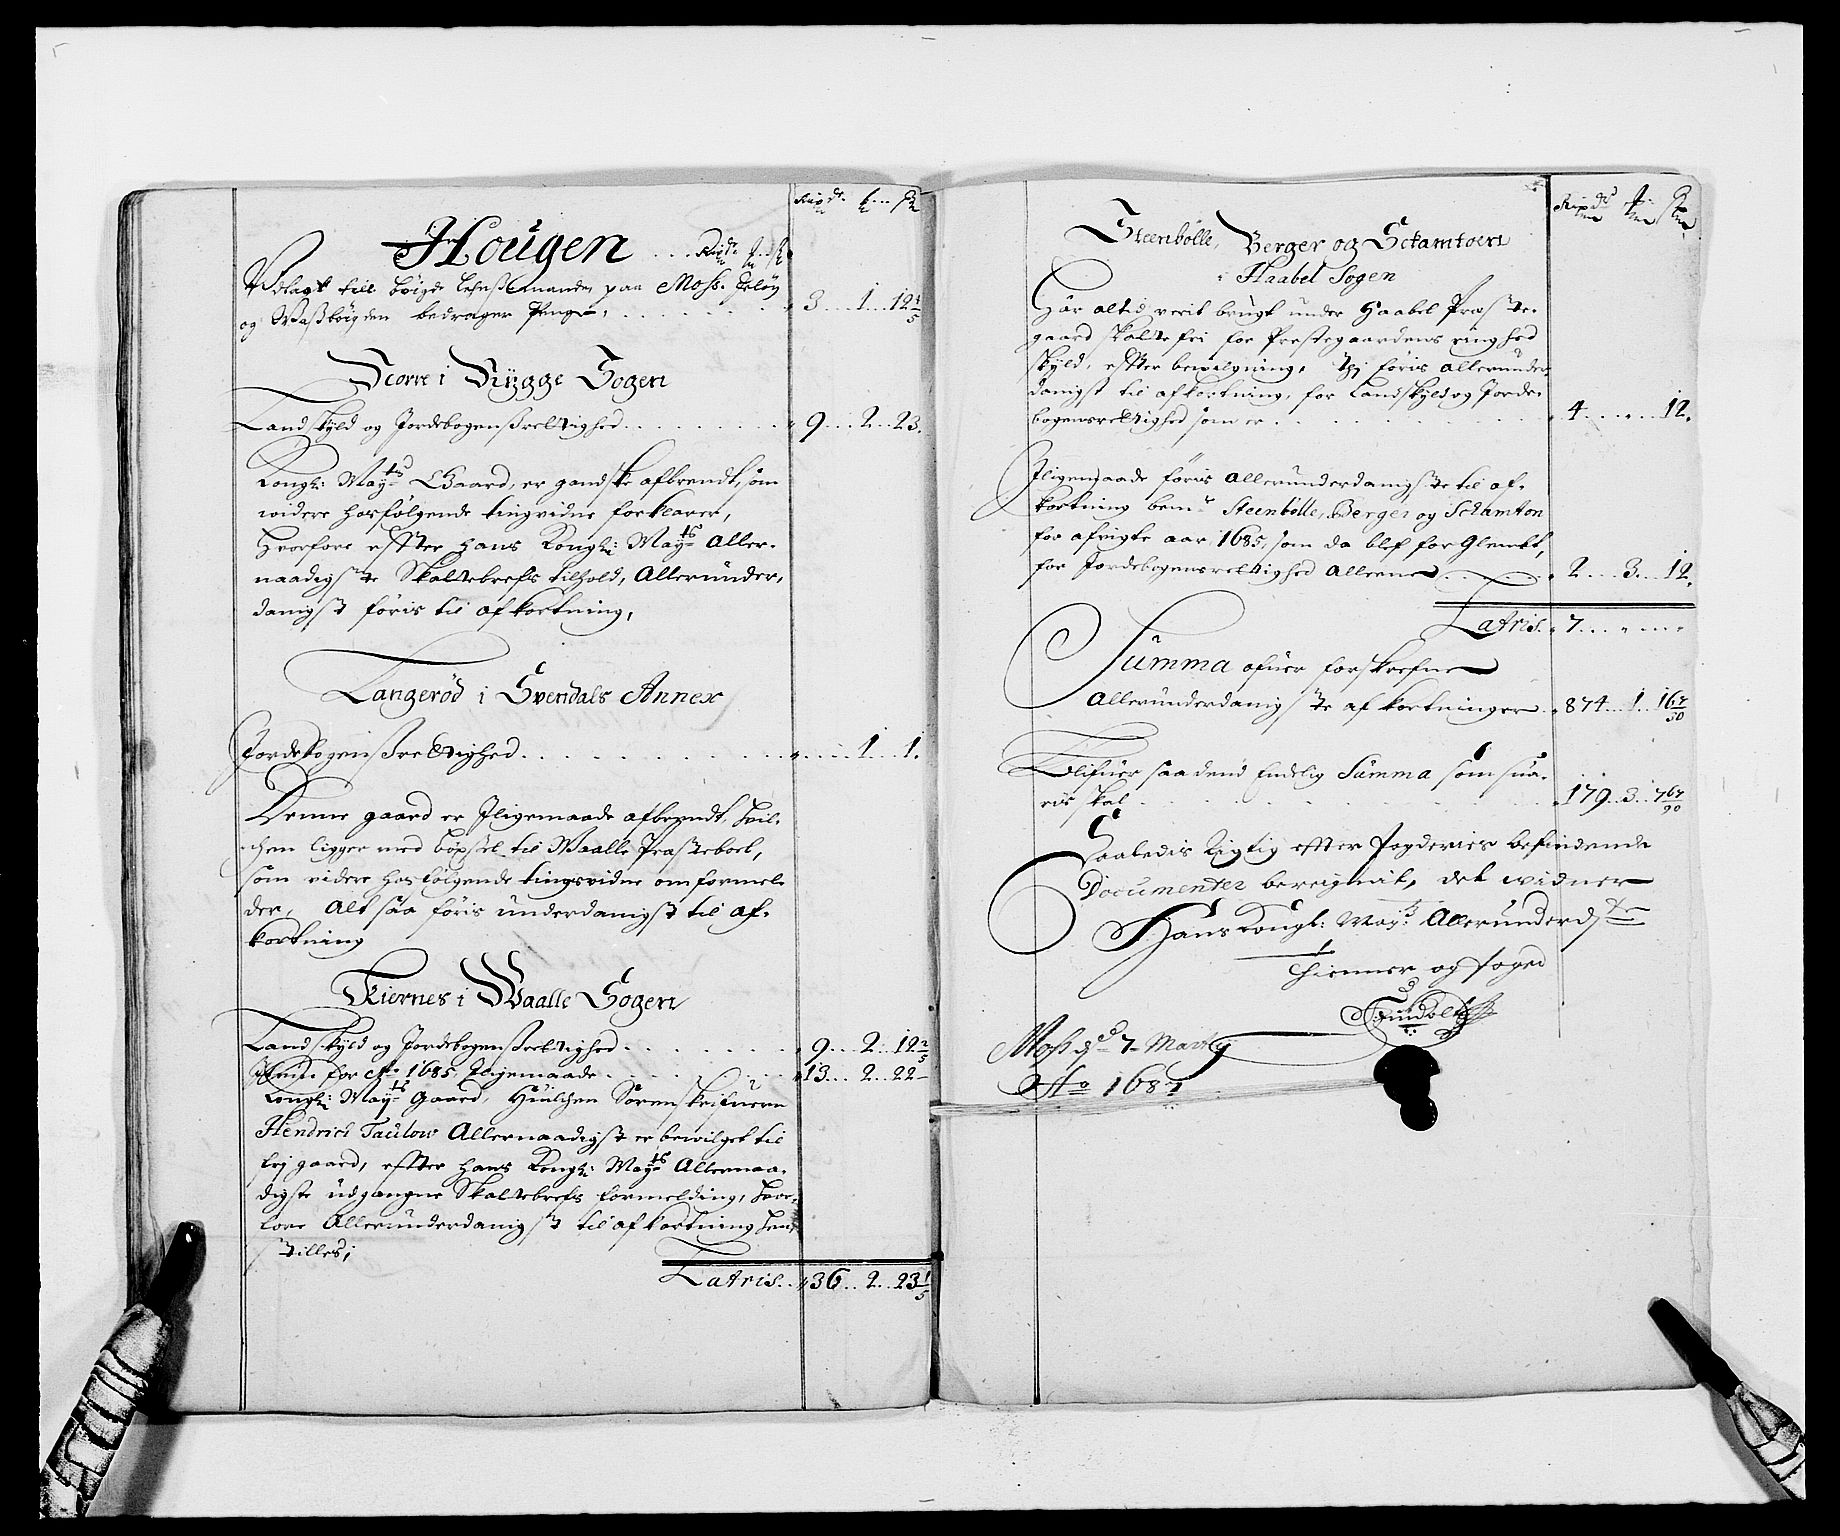 Rixdr. ... ſk
Hougen ... Rixdr. ...
Udlagt till böigde Lehnßmanden paa Moss. Jelöy
og Waßböigden bedrager Penge, . . . 3 . . 1 . . 12 4/5
Scorre i Rÿgge Sogen
Landskÿld og Jordebogensßrettighed . . . 9 . . 2 . . 23.
Kongli: Mayts Gaard, er gandske afbrendt, som
widere hosfölgende tingsvidne forklarer,
Hvorfore efter Hans Kongli: Mayts Aller-
naadigste Skattebrefs tilhold, Allerunder,
danigst föris til afkortning,
Langeröd i Svendals Annex
Jordebogensßrettighed . . . 1 . . 1.
Denne gaard er Iligemaade afbrendt, huil-
chen ligger med böxsel til Waalle Præsteboel,
som videre hosfölgende tingsvidne omformel-
der, Alt saa föris underdanigst til af-
kortning
Kiernes i Waalle Sogen
Landskÿld og Jordebogensßrettighed . . . 9 . . 2 . . 12 2/5
for Ao 1685 Iligemaade . . . 13 . . 2 . . 22
Kongli: Mayts Gaard, Huilchen Sorenskrifuern
Hendrich Taulow Allernaadigst er bewilget til
frj gaard, efter Hans Kongli: Mayts Allernaa-
digste udgangne Skattebrefs formelding, huor-
fore Allerunderdanigst til afkortning hen
stilles;
Latris . . 36 . . 2 . . 23 1/5
Rixdr ... ſk
Steenbölle, Berger og Schamtoen
i Haabel Sogen
Har altid verit brugt under Haabel Præste-
gaard skattefri for Prestegaardens ringhed
skÿld, efter bewilgning, thj föris allerunder-
danigst til afkortning, for Landskÿld og Jorde-
bogensrettighed som er . . . 4 . . . 12.
Iligemaade föris Allerunderdanigste til af-
kortning bemte Steenbölle, Berger og Schamton
for afvigte aar 1685, som da blef forglemt,
for Jordebogensrettighed alleene . . . 2 . . 3 . . 12.
Latris. 7 . . .
Summa ofuer forskrefne
Allerunderdanigste afkortninger . 874 . . 1 . . 16 67/50
Blifuer saa dend Endelig Summa som sua-
ris skal . . . 179 . . 3 . . 7 67/90
Saaledis Rigtig efter Fogderies befindende
Documenter beregnit, det widner
Hans Kongl: Mays Allerunderdte
thienner og foged
Moss d. 7 Marty
Ao 1687